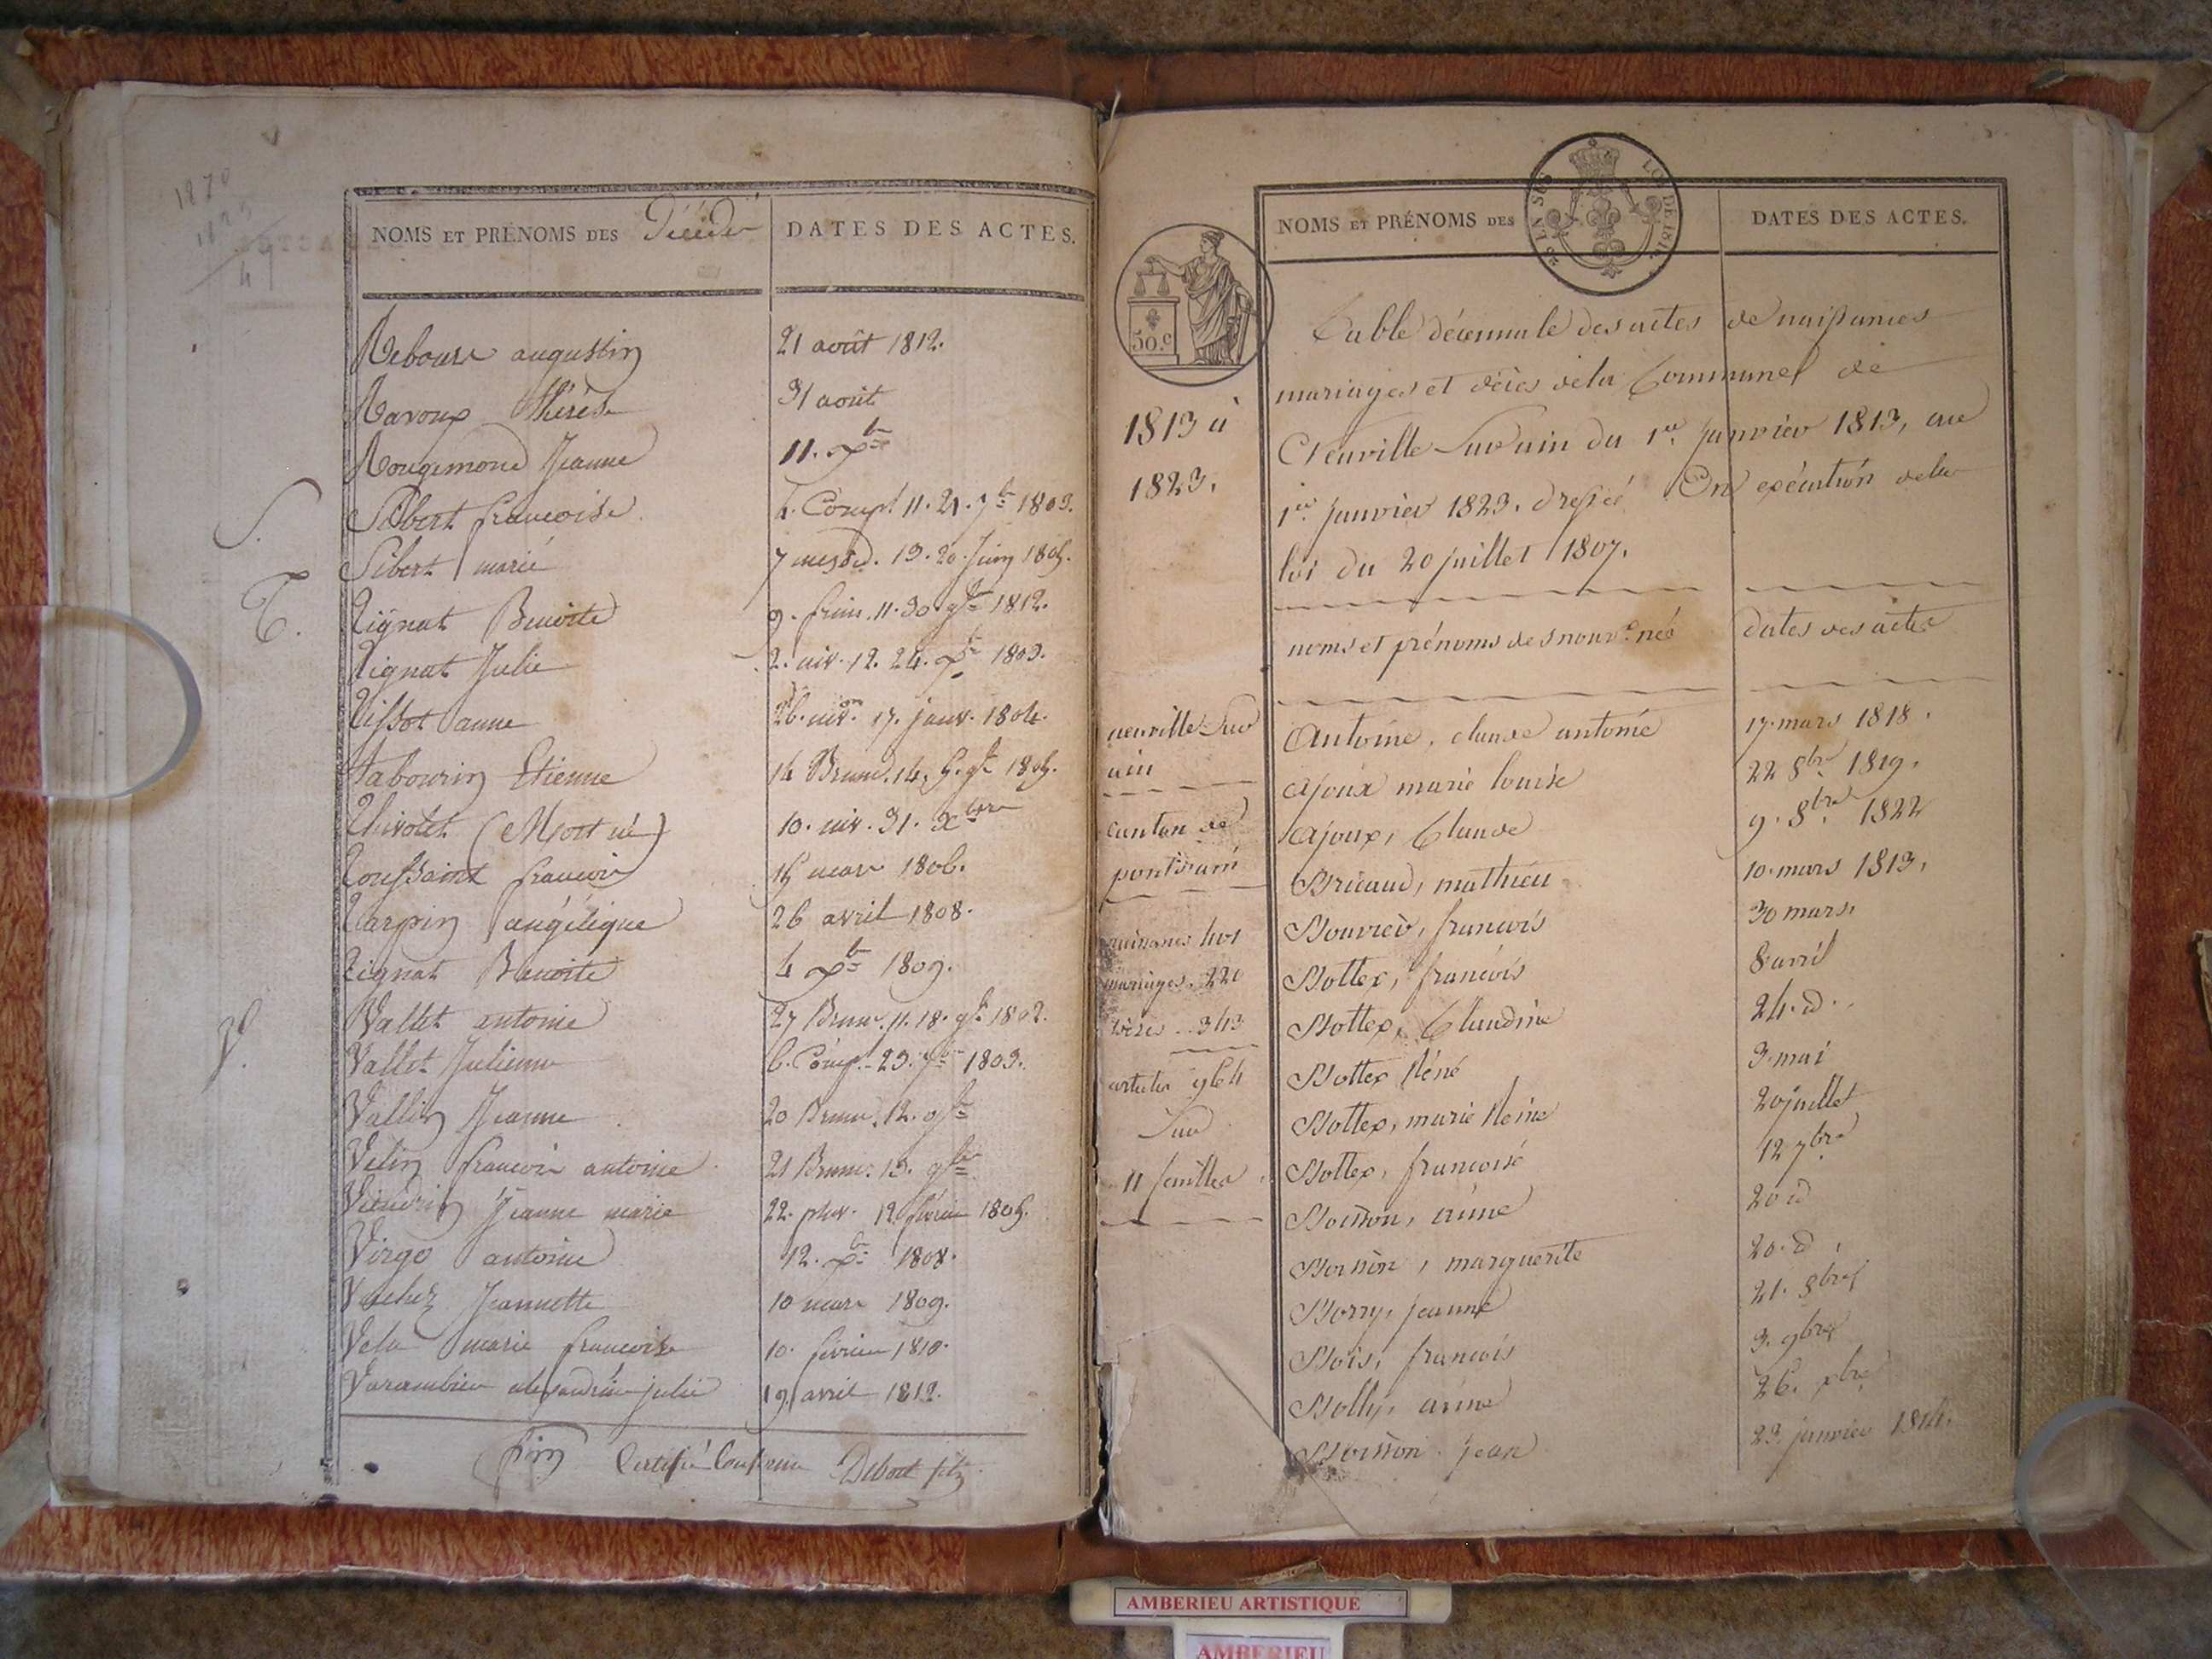 1870
NOMS ET PRÉNOMS DES Décédés DATES DES ACTES.
Rebours augustin 21 août 1812.
Ravoux Thérèse 31 août
Rougemond Jeanne 11. Xbre
S.
Sibert françoise 4. Compl. 11. 21. 7bre 1803.
Sibert marie 7 messd. 13. 20. Juin 1805.
T.
Tignat Benoite 9. frim. 11. 30. 9bre 1812.
Tignat Julie 2. niv. 12. 24. Xbre 1803.
Tissot anne 26. niv. 17. janv. 1804.
Tabourin Etienne 14 Brum. 14. 5. 9bre 1805.
Thivolet (Mort né) 10. niv. 31. Xbre
Toussaint françois 15 mars 1806.
Tarpin angélique 26 avril 1808.
Tignat Benoite 4 Xbre 1809.
V.
Vallet antoine 27 Brum. 11. 18. 9bre 1802.
Vallet Julienne 6. Compl. 23. 7bre 1803.
Vallin Jeanne 20 Brum. 12. 9bre
Velin françois antoine 21 Brum. 13. 9bre
Jeanne marie 22. pluv. 12. février 1805.
Virgo antoine 12. Xbre 1808.
Vachez Jeannette 10 mars 1809.
Vela marie françoise 10. février 1810.
Varambier alexandrine julie 19 avril 1812.
fin Certifié Conforme Debost fils
NOMS ET PRÉNOMS DES DATES DES ACTES.
LOI DE 1816
50.c
1813 à
1823.
Table décennale des actes de naissances
mariages et décès de la Commune de
Neuville Sur ain du 1er janvier 1813, au
1er janvier 1823. dressée En exécution de la
loi du 20 juillet 1807.
noms et prénoms des nouv. nés dates des actes
neuville Sur
ain
canton de
pontdain
naissances 401
mariages. 220
décès .. 343
articles 964
Sur
11 feuilles
Antoine, claude antoine 17. mars 1818.
Ajoux marie louise 22 8bre 1819.
Ajoux, Claude 9. 8bre 1822
Bricaud, mathieu 10. mars 1813.
Bouvier, françois 30 mars.
Bottex, françois 8 avril
Bottex, Claudine 24. d.
Bottex Réné 3. mai
Bottex, marie Reine 20 juillet
Bottex, françoise 12 7bre
Boisson, anne 20 d
Boisson, marguerite 20. d.
Borry, jeanne 21. 8bre
Bois, françois 3. 9bre
Bolly, anne 26. xbre
Boisson jean 23. janvier 1814.
AMBERIEU ARTISTIQUE
AMBERIEU